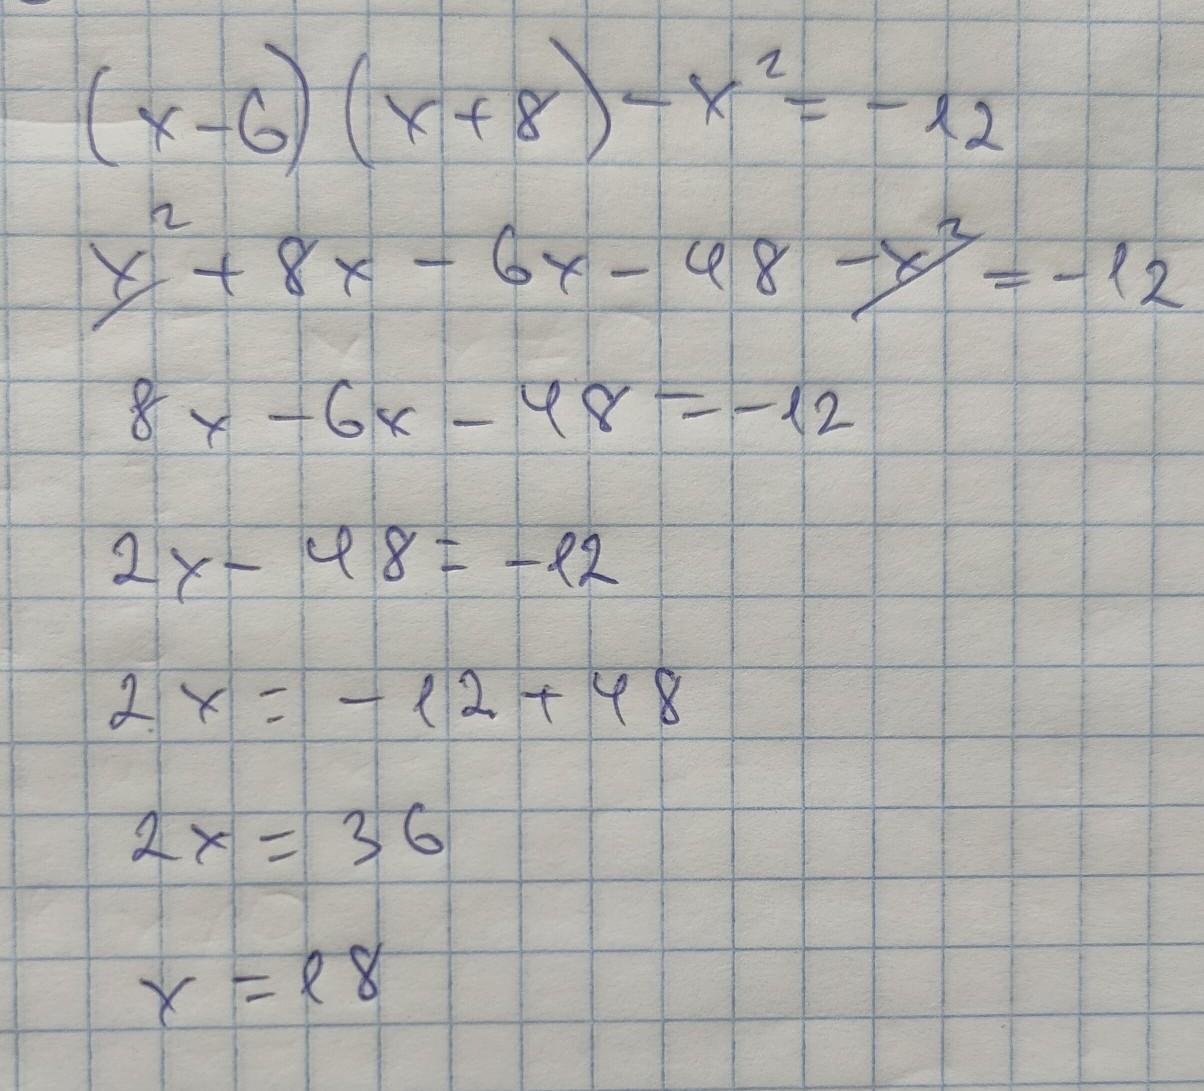 (x-6)(x+8)-x²=-12
x²+8x-6x-48-x²=-12
8x-6x-48=-12
2x-48=-12
2x=-12+48
2x=36
x=18